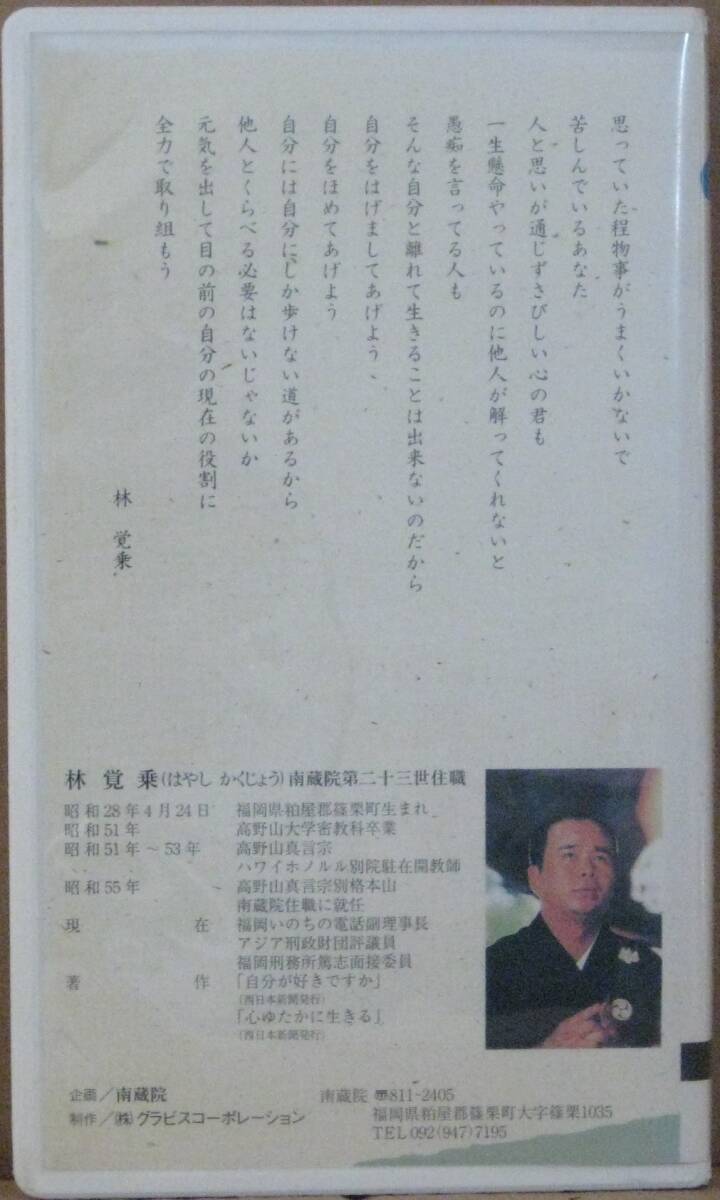 思っていた程物事がうまくいかないで
苦しんでいるあなた
人と思いが通じずさびしい心の君も
一生懸命やっているのに他人が解ってくれないと
愚痴を言ってる人も
そんな自分と離れて生きることは出来ないのだから
自分をはげましてあげよう、
自分をほめてあげよう
自分には自分にしか歩けない道があるから
他人とくらべる必要はないじゃないか
元気を出して目の前の自分の現在の役割に
全力で取り組もう
林 覚乗
林 覚 乗(はやし かくじょう)南蔵院第二十三世住職
昭和28年4月24日 福岡県粕屋郡篠栗町生まれ
昭和51年 高野山大学密教科卒業
昭和51年~53年 高野山真言宗
ハワイホノルル別院駐在開教師
昭和55年 高野山真言宗別格本山
南蔵院住職に就任
現 在 福岡いのちの電話副理事長
アジア刑政財団評議員
福岡刑務所篤志面接委員
著 作 「自分が好きですか」
(西日本新聞発行)
「心ゆたかに生きる」
(西日本新聞発行)
企画/南蔵院
制作/㈱グラビスコーポレーション
南蔵院 〠811-2405
福岡県粕屋郡篠栗町大字篠栗1035
TEL 092(947)7195